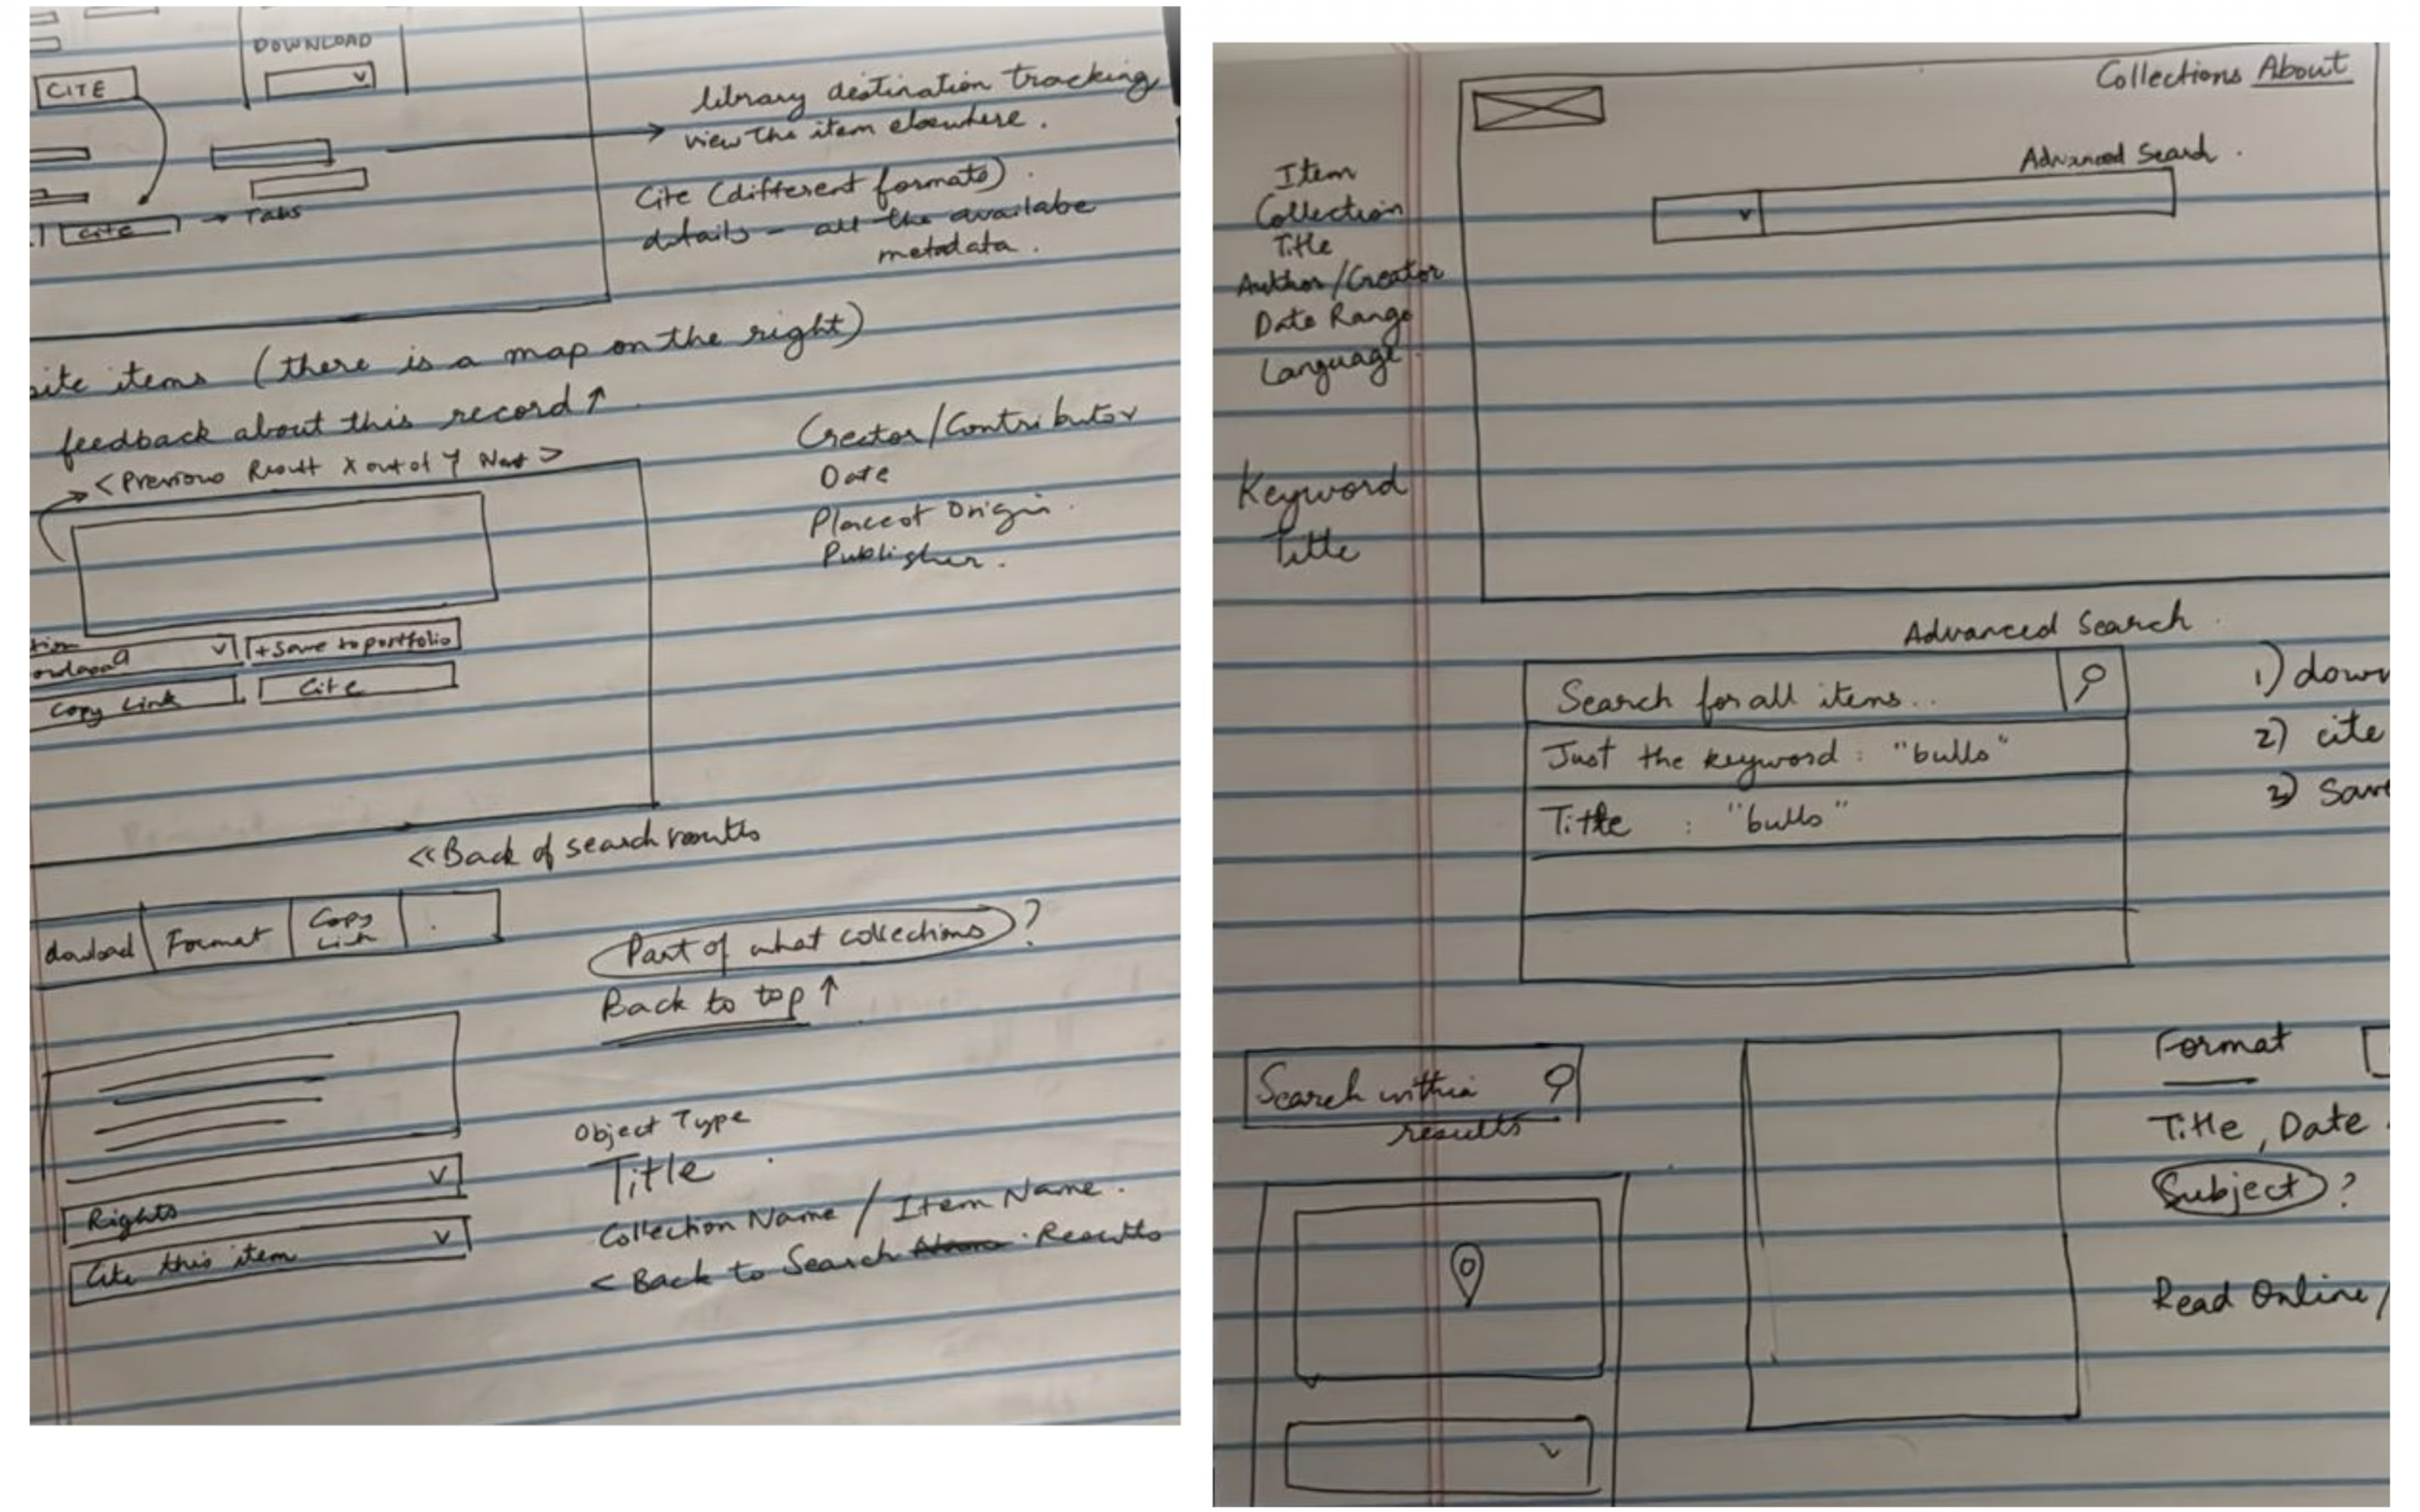 DOWNLOAD
CITE
library destination tracking
view the item elsewhere.
Cite (different formats).
details - all the availabe
metadata.
cite → Tabs
site items (there is a map on the right)
feedback about this record ↑
< Previous Result X out of Y Next >
Creator/Contributor
Date
Place of Origin.
Publisher.
+ Save to portfolio
Copy Link
Cite
<< Back of search results
Format
Copy
Link
Part of what collections?
Back to top ↑
Object Type
Title
Collection Name / Item Name.
< Back to Search Results
Rights
Cite this item
Collections About
Advanced Search.
Item
Collection
Title
Author/Creator
Date Range
Language
Keyword
Title
Advanced Search
Search for all items..
Just the keyword : "bulls"
Title : "bulls"
1) down
2) cite
3) Save
Search within
results
Format
Title, Date
Subject?
Read Online/